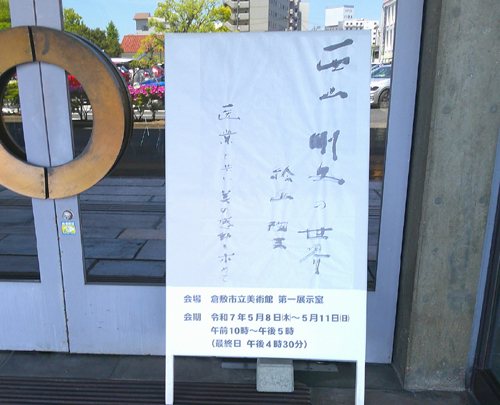 西山 剛史の世界
医業と共に美の感動を求めて
会場 倉敷市立美術館 第一展示室
会期 令和7年5月8日㈭～5月11日㈰
午前10時～午後5時
(最終日 午後4時30分)